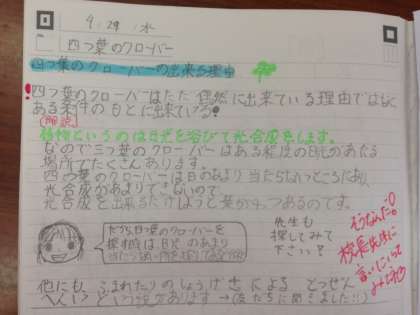 4 29 水
四つ葉のクローバー
四つ葉のクローバーの出来る理由
四つ葉のクローバーはただ偶然に出来ている理由ではなく
ある条件のもとに出来ている!
(解説)
植物というのは日光を浴びて光合成をします。
なので三つ葉のクローバーはある程度の日光があたる
場所でたくさんあります。
四つ葉のクローバーは日のあまり当たらないところにあり、
光合成があまりできないので
光合成を出来るだけしようと葉が4つあるのです。
だから四つ葉のクローバーを
探す時は、日光のあまり
当たらない所を探してみてください
先生も
探してみて
下さい?
そうなんだ!
校長先生に
言いにいって
みよう
他にも、ふまれたりのしょうげきによる とつぜん
へんいという説があります→(友だちに聞きました!!)